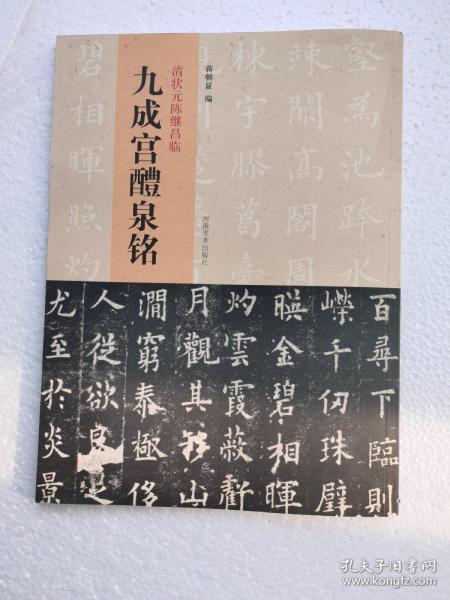 九成宫醴泉铭
清状元陈继昌临
蒋朝显 编
河南美术出版社
壑為池跨水
竦闕高閣周
棟宇膠葛臺
碧相暉照灼
百尋下臨則
嶸千仞珠璧
暎金碧相暉
灼雲霞蔽虧
月觀其移山
澗窮泰極侈
人從欲良足
尤至於炎景
孔夫子旧书网
www.kongfz.com